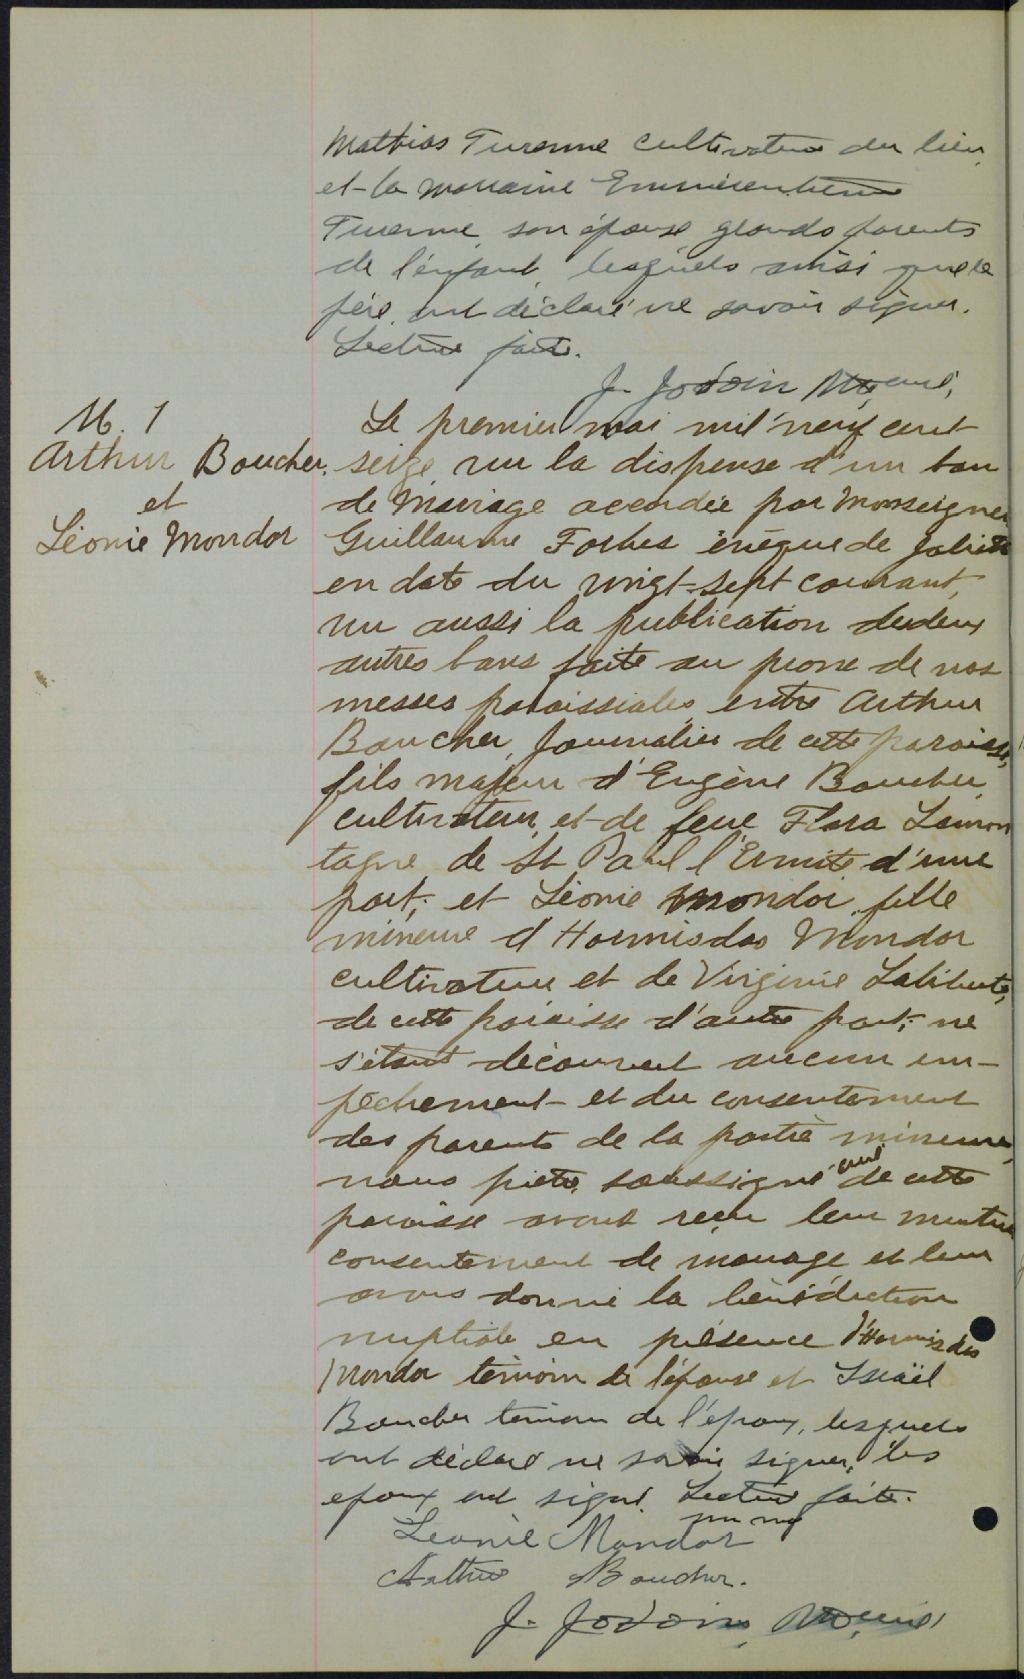 Mathias Turenne cultivateur du lieu
et la marraine
Turenne son épouse grands parents
de l'enfant, lesquels ainsi que le
père ont déclaré ne savoir signer.
Lecture faite.
J. Jodoin Ptre, curé,
M. 1
Arthur Boucher
et
Léonie Mondor
Le premier mai mil neuf cent
seize, vu la dispense d'un ban
de mariage accordée par Monseigneur
Guillaume Forbes évêque de Joliette
en date du vingt-sept courant,
vu aussi la publication de deux
autres bans faite au prone de nos
messes paroissiales entre Arthur
Boucher, journalier de cette paroisse,
fils majeur d'Eugène Boucher,
cultivateur, et de feue Flora Lamon
tagne de St Paul l'Ermite d'une
part; et Léonie Mondor, fille
mineure d'Hormisdas Mondor
cultivateur et de Virginie Laliberté,
de cette paroisse d'autre part; ne
s'étant découvert aucun em-
pêchement et du consentement
des parents de la partie mineure,
nous prêtre, soussigné curé de cette
paroisse avons reçu leur mutuel
consentement de mariage et leur
avons donné la bénédiction
nuptiale en présence d'Hormisdas
Mondor témoin de l'épouse et Israël
Boucher témoin de l'époux, lesquels
ont déclaré ne savoir signer, les
epoux ont signé. Lecture faite.
Leonie Mondor
Arthur Boucher.
J. Jodoin, Ptre, curé